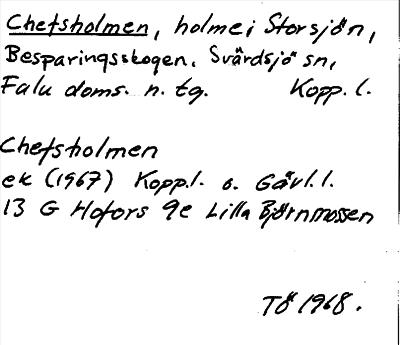 Chefsholmen, holme i Storsjön,
Besparingsskogen, Svärdsjö sn,
Falu doms. n. tg. Kopp. l.
Chefsholmen
ek (1967) Kopp.l. o. Gävl. l.
13 G Hofors 9e Lilla Björnmossen
TÖ 1968.